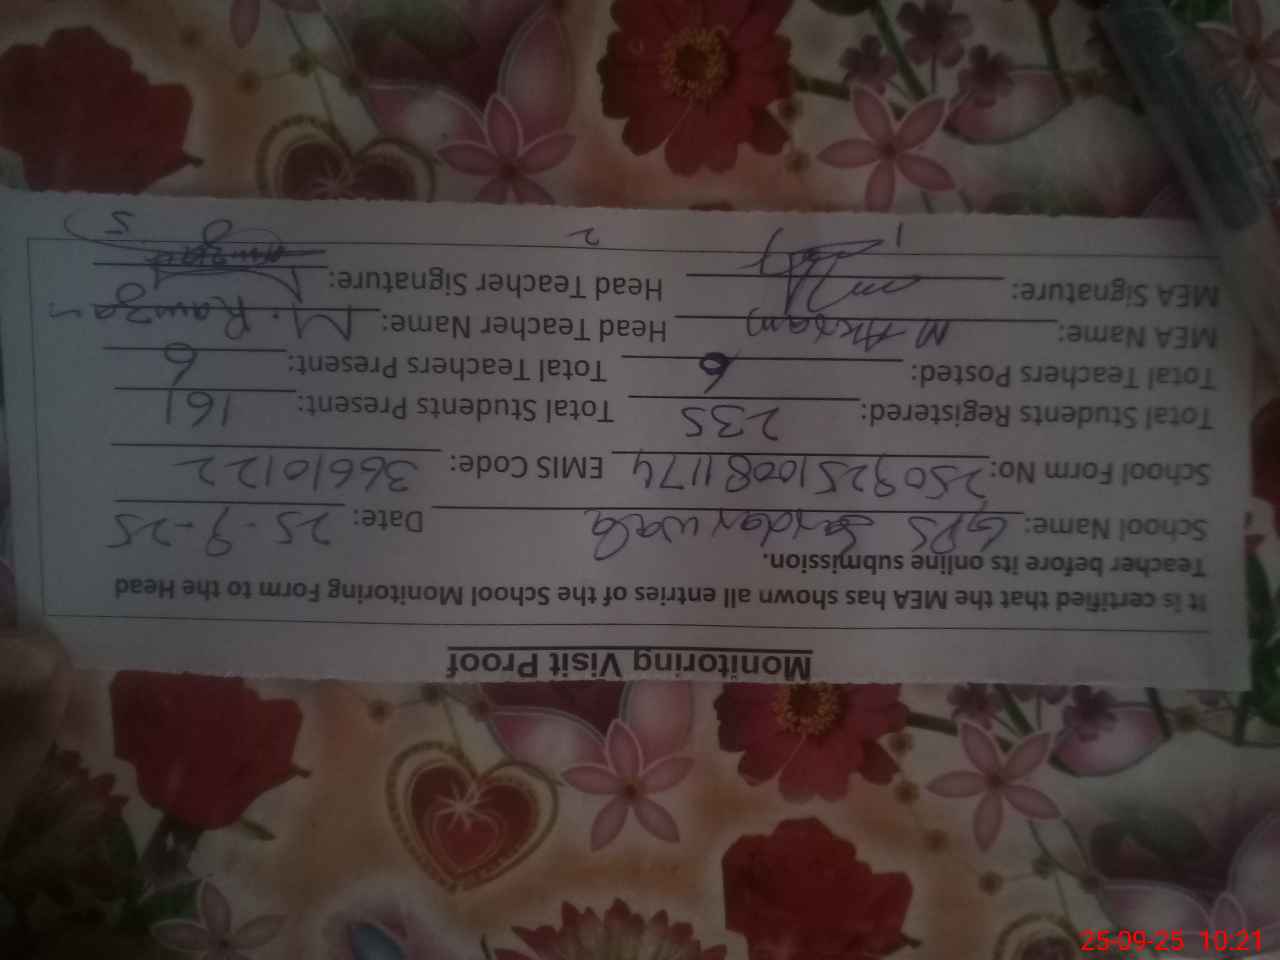 Monitoring Visit Proof
It is certified that the MEA has shown all entries of the School Monitoring Form to the Head
Teacher before its online submission.
School Name: GPS Sardar wala Date: 25-9-25
School Form No: 25092510081174 EMIS Code: 36610122
Total Students Registered: 235 Total Students Present: 161
Total Teachers Posted: 6 Total Teachers Present: 6
MEA Name: M Akram Head Teacher Name: M. Ramzan
MEA Signature: Head Teacher Signature:
1 2 5
25-09-25 10:21